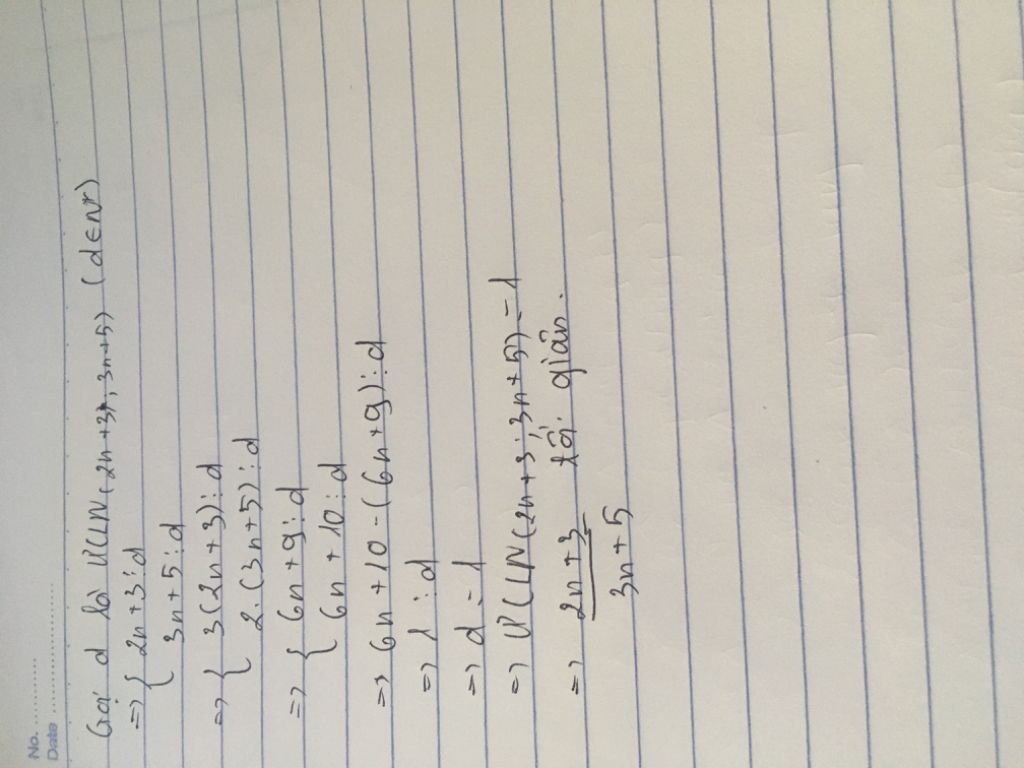 No. ............
Date .....................
Gọi d là ƯCLN(2n+3; 3n+5) (d∈N*)
=> { 2n+3⋮d
3n+5⋮d
=> { 3(2n+3)⋮d
2.(3n+5)⋮d
=> { 6n+9⋮d
6n+10⋮d
=> 6n+10-(6n+9)⋮d
=> 1⋮d
=> d=1
=> ƯCLN(2n+3; 3n+5)=1
=> 2n+3 tối giản.
3n+5